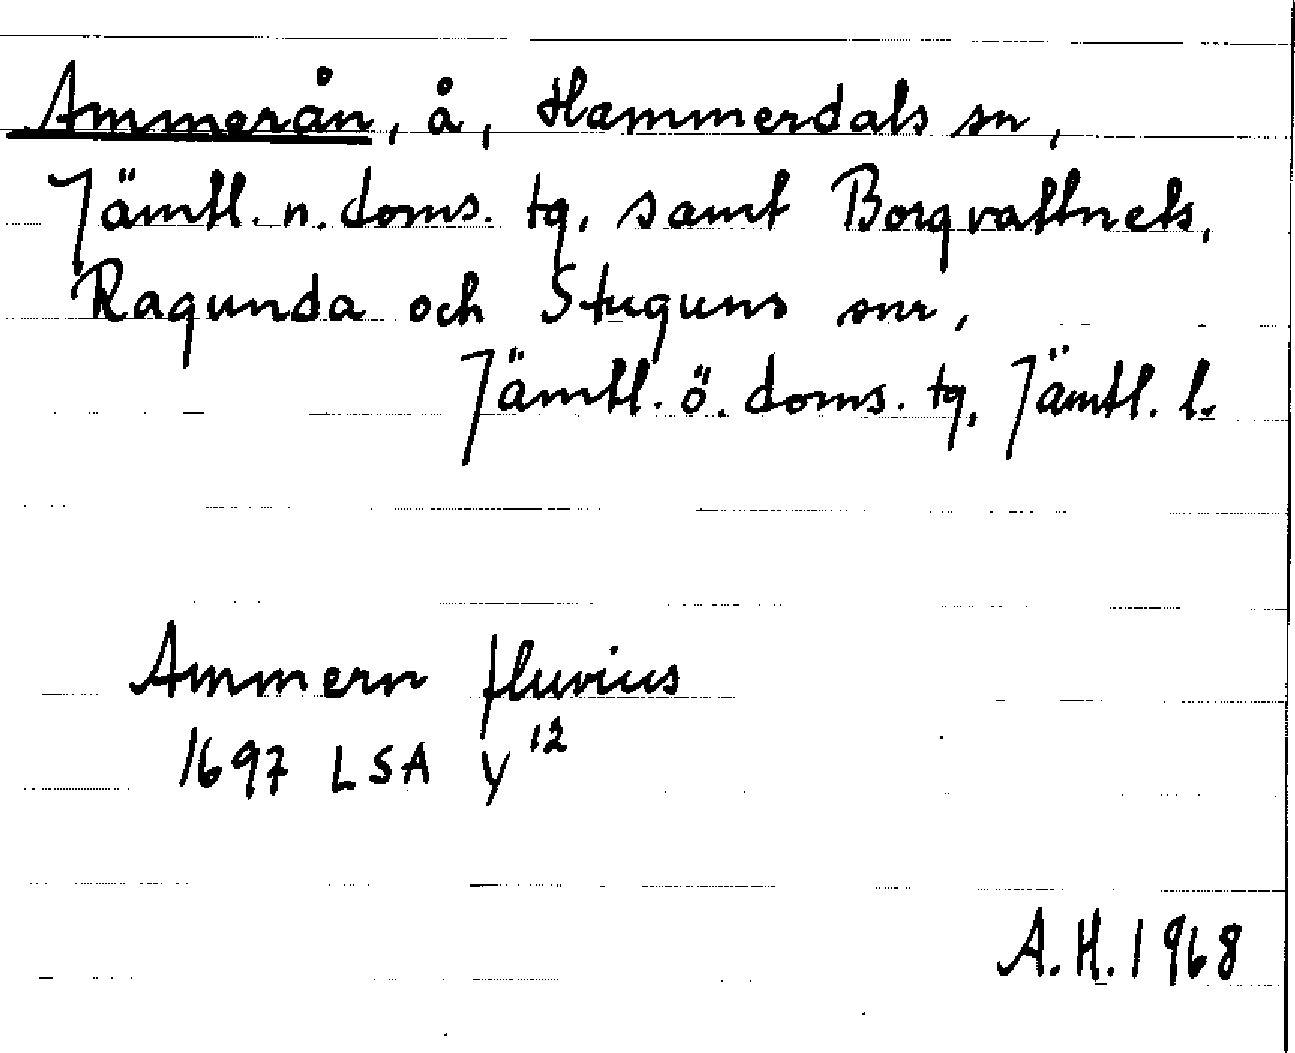 Ammerån, å, Hammerdals sn,
Jämtl. n. doms. tg, samt Borgvattnets,
Ragunda och Stuguns snr,
Jämtl. ö. doms. tg, Jämtl. l.
Ammern fluvius
1697 LSA Y 12
A.H. 1968